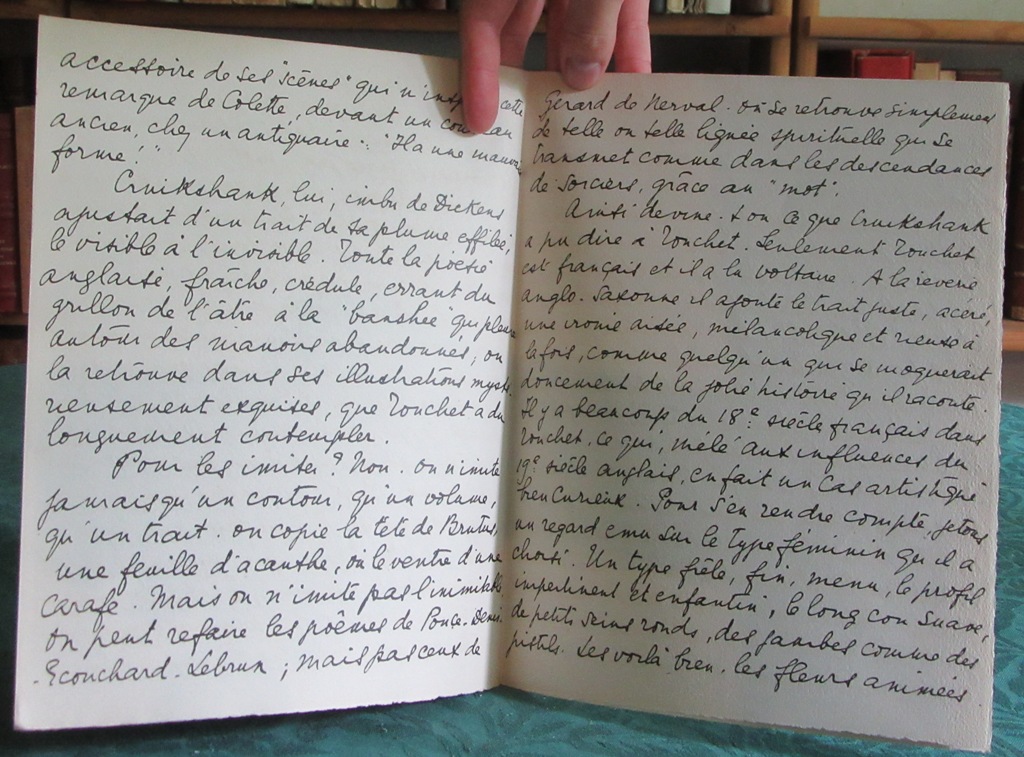 accessoire de ses "scènes" qui n'insp cette
remarque de Colette, devant un
ancien, chez un antiquaire : "Il a une mauv
forme !"
Cruikshank, lui, imbu de Dickens
ajustait d'un trait de sa plume effilée,
le visible à l'invisible. Toute la poésie
anglaise, fraîche, crédule, errant du
grillon de l'âtre à la "banshee" qui pleure
autour des manoirs abandonnés, on
la retrouve dans ses illustrations mysté-
rieusement exquises, que Touchet a du
longuement contempler.
Pour les imiter ? Non. On n'imite
jamais qu'un contour, qu'un volume,
qu'un trait. On copie la tête de Brutus,
une feuille d'acanthe, ou le ventre d'une
carafe. Mais on n'imite pas l'inimitable
On peut refaire les poèmes de Ponce-Denis
-Ecouchard-Lebrun ; mais pas ceux de
Gerard de Nerval. On se retrouve simplement
de telle ou telle lignée spirituelle qui se
transmet comme dans les descendances
de sorciers, grâce au "mot".
Ainsi devine-t-on ce que Cruikshank
a pu dire à Touchet. Seulement Touchet
est français et il a lu Voltaire. A la reverie
anglo-saxonne il ajoute le trait juste, acéré,
une ironie aisée, mélancolique et rieuse à
la fois, comme quelqu'un qui se moquerait
doucement de la jolie histoire qu'il raconte.
Il y a beaucoup du 18e siècle français dans
Touchet, ce qui, mêlé aux influences du
19e siècle anglais, en fait un cas artistique
bien curieux. Pour s'en rendre compte, jetons
un regard emu sur le type féminin qu'il a
choisi. Un type frêle, fin, menu, le profil
impertinent et enfantin, le long cou suave,
de petits seins ronds, des jambes comme des
pistils. Les voilà bien, les fleurs animées